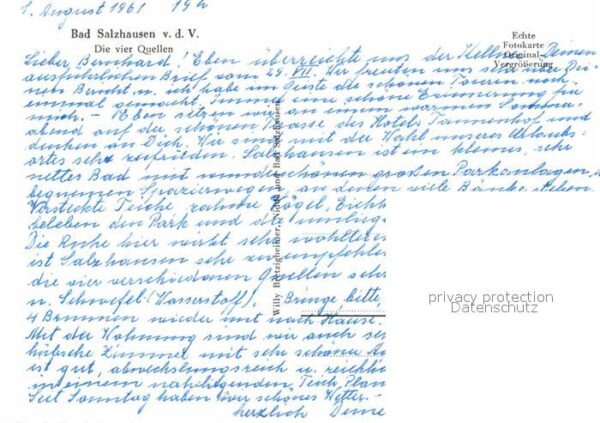 1. August 1961 19 h
Bad Salzhausen v. d. V.
Die vier Quellen
Echte
Fotokarte
Original-
Vergrößerung
Lieber Bernhard! Eben überreichte uns der Kellner Deinen
ausführlichen Brief vom 29. VII. Wir freuten uns sehr über Dei-
nen Bericht u. ich habe im Geiste die schönen Touren noch
einmal gemacht. Immer eine schöne Erinnerung für
mich. – Eben sitzen wir an einem warmen Sommer-
abend auf der schönen Terrasse des Hotels Tannenhof und
denken an Dich. Wir sind mit der Wahl unseres Urlaubs-
ortes sehr zufrieden. Salzhausen ist ein kleines, sehr
nettes Bad mit wunderschönen großen Parkanlagen,
bequemen Spazierwegen an denen viele Bänke stehen.
Versteckte Teiche, zahme Vögel, Eichh
beleben den Park und die umlieg
Die Ruhe hier wirkt sehr wohltuend
ist Salzhausen sehr zu empfehlen
die vier verschiedenen Quellen
u. Schwefel (Wasserstoff). Bringe, bitte,
4 Brunnen wieder mit nach Hause.
Mit der Wohnung sind wir auch se
hübsche Zimmer mit sehr schöner
ist gut, abwechslungsreich u. reichli
in einem naheliegenden Teich.
Seit Sonntag haben wir schönes Wetter. –
herzlich Deine
Willy Bretzigheimer, Nidda und Bad Salzhausen
privacy protection
Datenschutz